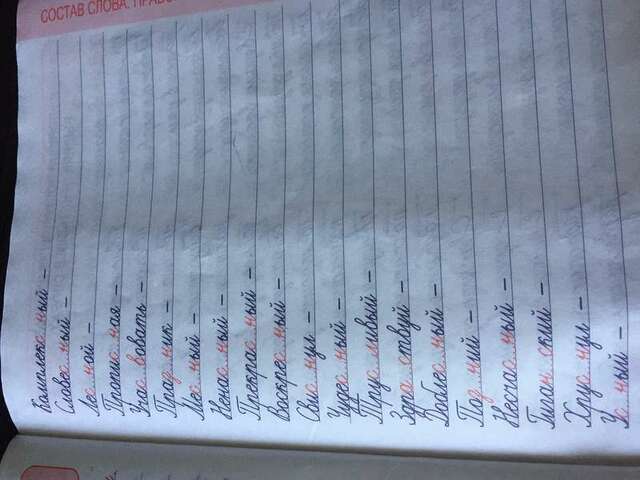 СОСТАВ СЛОВА. ПРАВО
Комплекс..ный –
Словес..ный –
Лес..ной –
Пропис..ная –
Учас..вовать –
Праз..ник –
Мес..ный –
Ненас..ный –
Прекрас..ный –
Воскрес..ный –
Свис..нул –
Чудес..ный –
Трус..ливый –
Здра..ствуй –
Доблес..ный –
Поз..ний –
Несчас..ный –
Гиган..ский –
Хрус..нул –
Ус..ный –